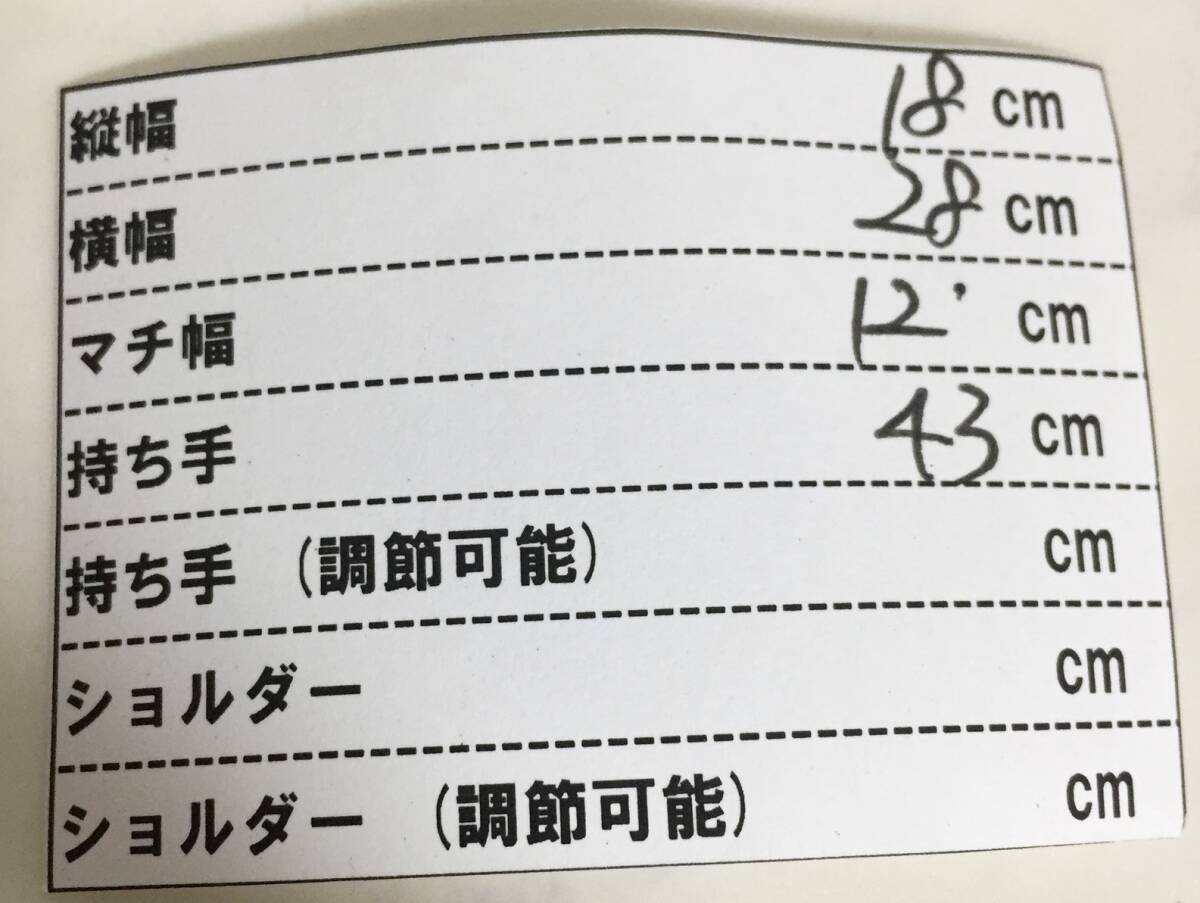 縦幅 18 cm
横幅 28 cm
マチ幅 12 cm
持ち手 43 cm
持ち手 (調節可能) cm
ショルダー cm
ショルダー (調節可能) cm